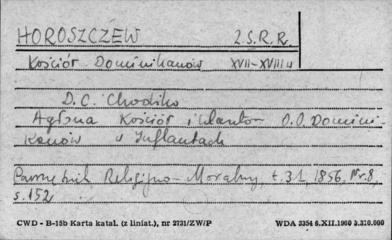 HOROSZCZEW Z.S.R.R.
Kościół Dominikanów XVII-XVIII w
D.C. Chodźko
Kościół i klasztor O.O. Domini-
kanów w Inflantach
Pamiętnik Religijno-Moralny, t.31, 1856, Nr.8,
s.152
CWD - B-15b Karta katal. (z liniat.), nr 2731/ZW/P WDA 3354 6.XII.1960 à.310.000